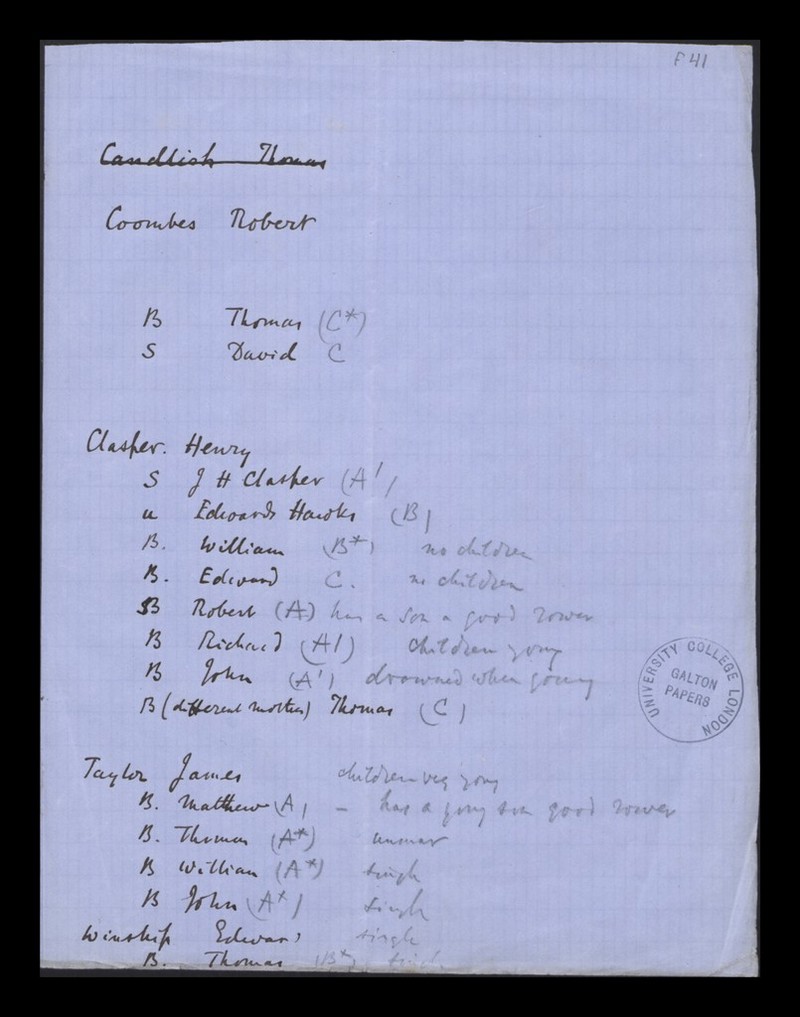 F 41
Candlish Thomas
Coombes Robert
B Thomas (C*)
S David C
Clasper. Henry
S J H Clasper (A')
u Edward Hawks (B)
B. William (B*) no children
B. Edward C. no children
B Robert (A) has a son a good rower
B Richard (A') children young
B John (A') drowned when young
B (different mother) Thomas (C)
UNIVERSITY COLLEGE LONDON
GALTON PAPERS
Taylor James children very young
B. Matthew (A) – has a young son good rower
B. Thomas (A*) unmar
B William (A*) single
B John (A*) single
Winship Edward single
B. Thomas (B*)